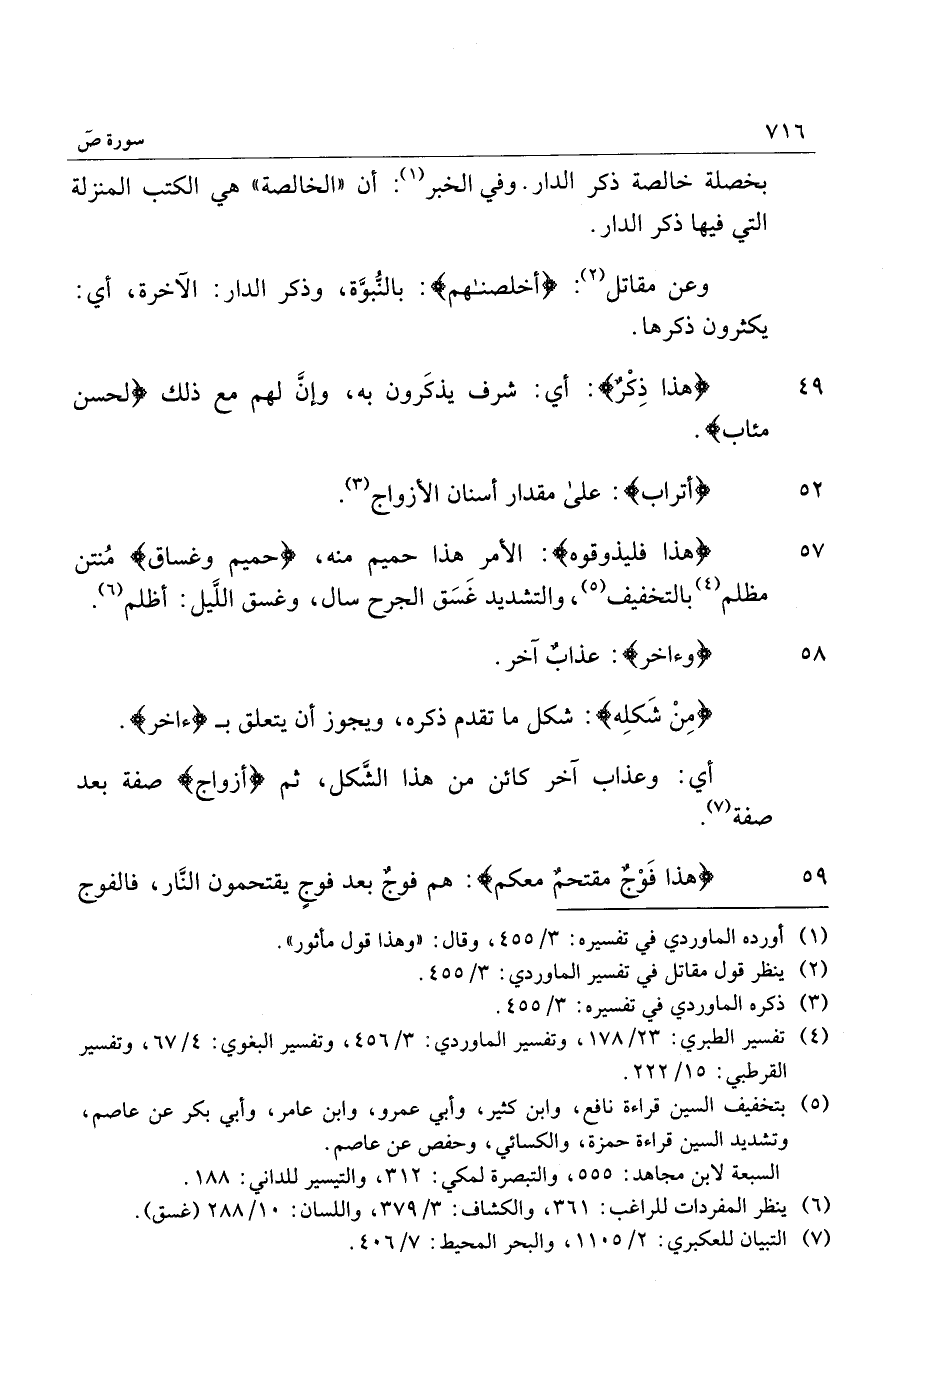 ٧١٦ سورة صۤ
بخصلة خالصة ذكر الدار. وفي الخبر(١): أن «الخالصة» هي الكتب المنزلة
التي فيها ذكر الدار.
وعن مقاتل(٢): ﴿أخلصنٰهم﴾: بالنُّبوَّة، وذكر الدار: الآخرة، أي:
يكثرون ذكرها.
٤٩ ﴿هذا ذِكْرٌ﴾: أي: شرف يذكَرون به، وإنَّ لهم مع ذلك ﴿لحسن
مئاب﴾.
٥٢ ﴿أتراب﴾: علىٰ مقدار أسنان الأزواج(٣).
٥٧ ﴿هذا فليذوقوه﴾: الأمر هذا حميم منه، ﴿حميم وغساق﴾ مُنتن
مظلم(٤) بالتخفيف(٥)، والتشديد غَسَق الجرح سال، وغسق اللَّيل: أظلم(٦).
٥٨ ﴿وءاخر﴾: عذابٌ آخر.
﴿مِنْ شَكلِه﴾: شكل ما تقدم ذكره، ويجوز أن يتعلق بـ ﴿ءاخر﴾.
أي: وعذاب آخر كائن من هذا الشَّكل، ثم ﴿أزواج﴾ صفة بعد
صفة(٧).
٥٩ ﴿هذا فَوْجٌ مقتحمٌ معكم﴾: هم فوجٌ بعد فوجٍ يقتحمون النَّار، فالفوج
(١) أورده الماوردي في تفسيره: ٣/ ٤٥٥، وقال: «وهذا قول مأثور».
(٢) ينظر قول مقاتل في تفسير الماوردي: ٣/ ٤٥٥.
(٣) ذكره الماوردي في تفسيره: ٣/ ٤٥٥.
(٤) تفسير الطبري: ٢٣/ ١٧٨، وتفسير الماوردي: ٣/ ٤٥٦، وتفسير البغوي: ٤/ ٦٧، وتفسير
القرطبي: ١٥/ ٢٢٢.
(٥) بتخفيف السين قراءة نافع، وابن كثير، وأبي عمرو، وابن عامر، وأبي بكر عن عاصم،
وتشديد السين قراءة حمزة، والكسائي، وحفص عن عاصم.
السبعة لابن مجاهد: ٥٥٥، والتبصرة لمكي: ٣١٢، والتيسير للداني: ١٨٨.
(٦) ينظر المفردات للراغب: ٣٦١، والكشاف: ٣/ ٣٧٩، واللسان: ١٠/ ٢٨٨ (غسق).
(٧) التبيان للعكبري: ٢/ ١١٠٥، والبحر المحيط: ٧/ ٤٠٦.